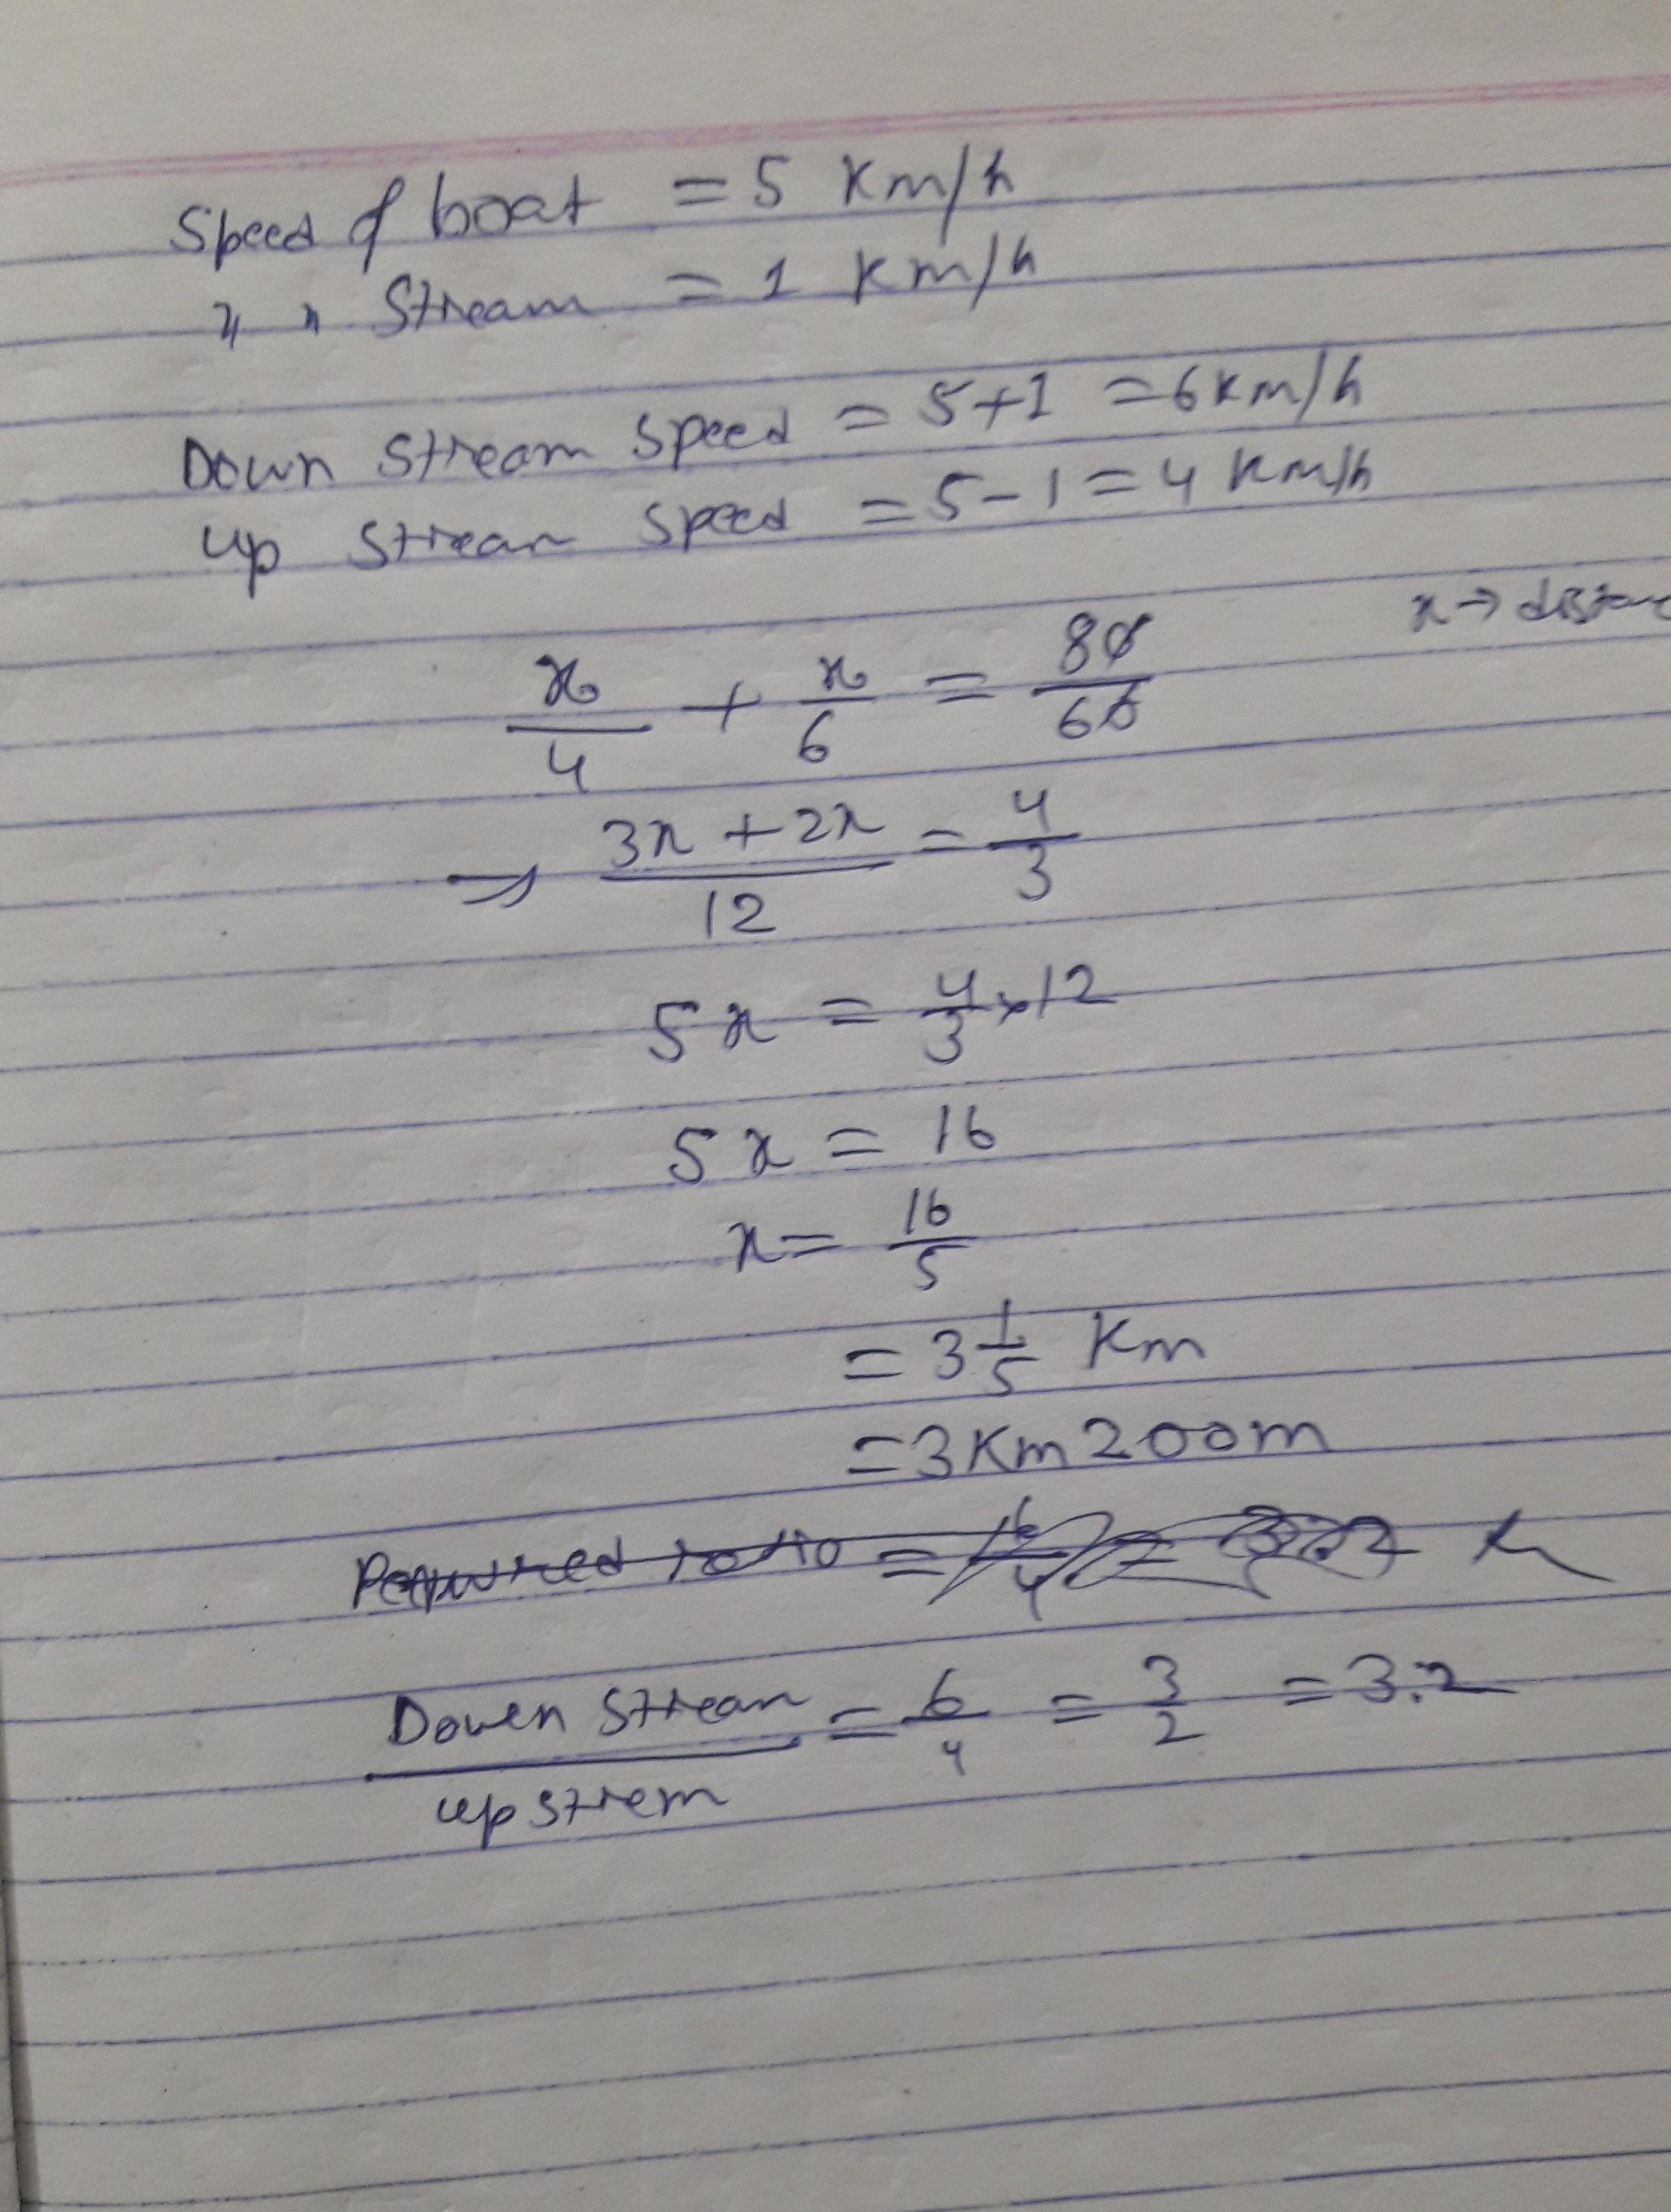 Speed of boat = 5 Km/h
" " Stream = 1 Km/h
Down Stream Speed = 5+1 = 6 Km/h
Up Stream Speed = 5-1 = 4 Km/h
x → distance
x/4 + x/6 = 80/60
→ 3x + 2x/12 = 4/3
5x = 4/3 × 12
5x = 16
x = 16/5
= 3 1/5 Km
= 3 Km 200m
Required ratio =
Down Stream/up strem = 6/4 = 3/2 = 3:2